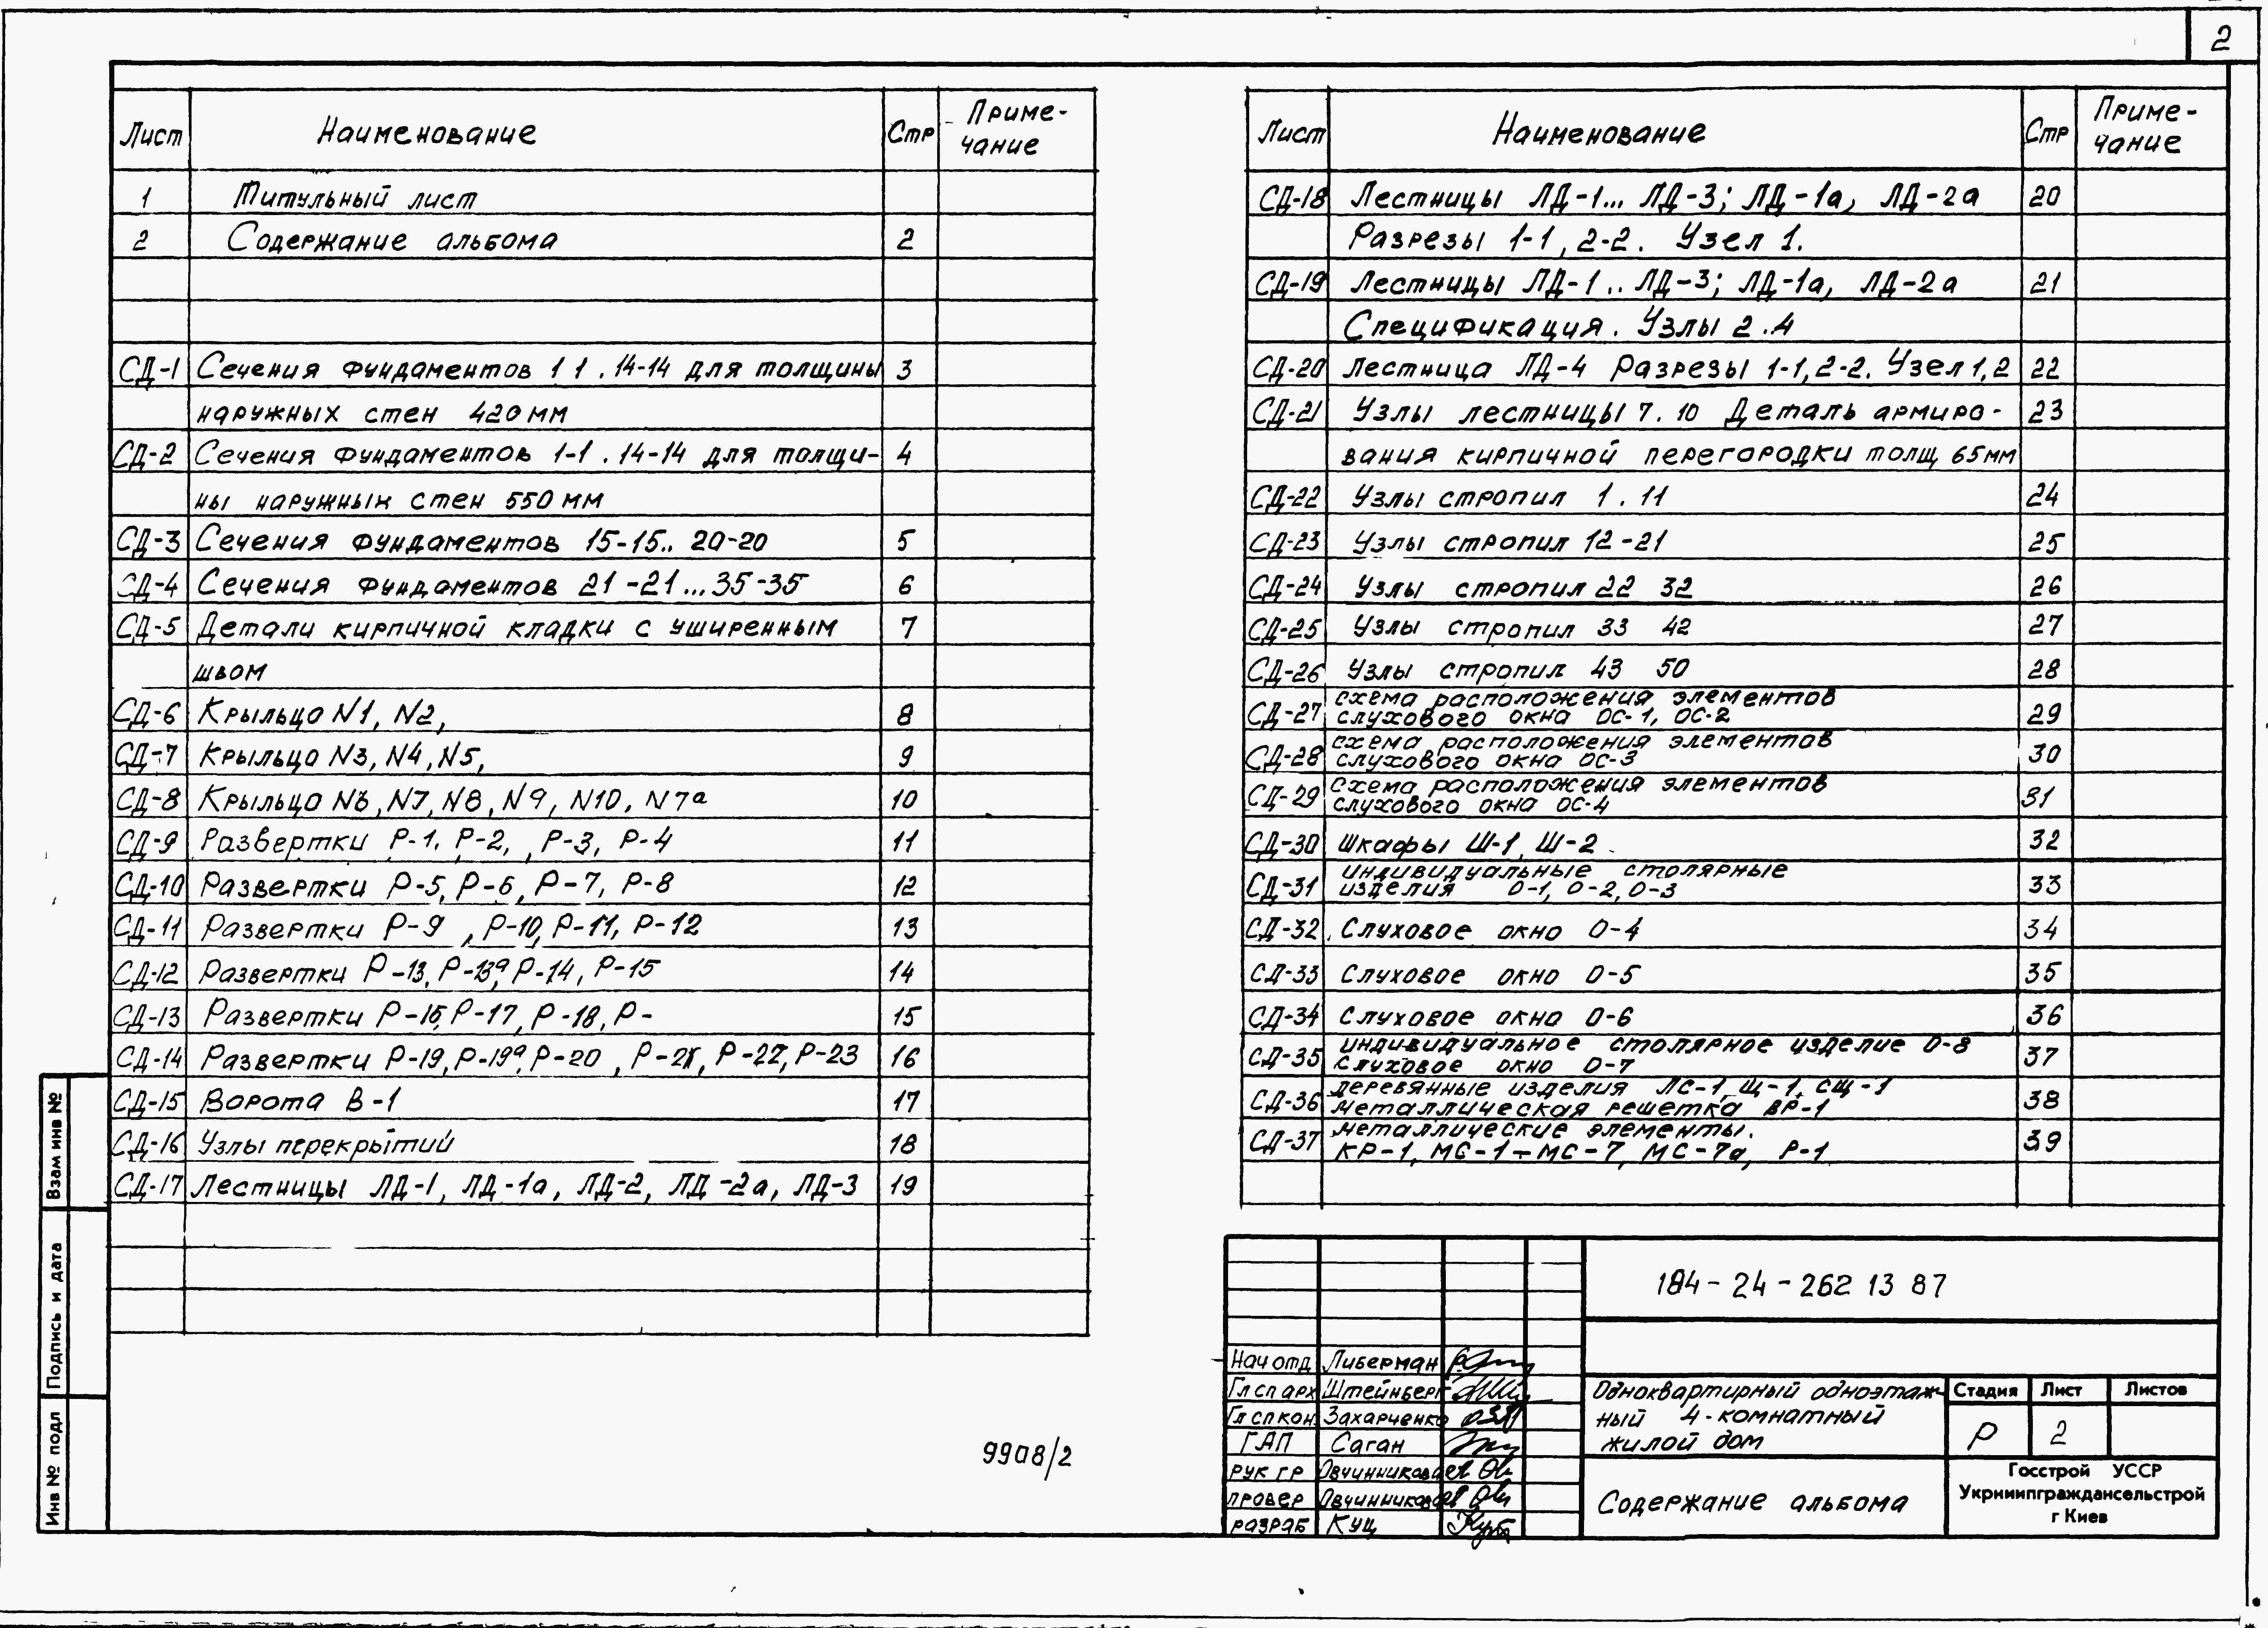 2
Лист Наименование Стр Приме-
чание
1 Титульный лист
2 Содержание альбома 2
СД-1 Сечения фундаментов 1 1 . 14-14 для толщины 3
наружных стен 420 мм
СД-2 Сечения фундаментов 1-1 . 14-14 для толщи- 4
ны наружных стен 550 мм
СД-3 Сечения фундаментов 15-15.. 20-20 5
СД-4 Сечения фундаментов 21-21...35-35 6
СД-5 Детали кирпичной кладки с уширенным 7
швом
СД-6 Крыльцо N1, N2, 8
СД-7 Крыльцо N3, N4, N5, 9
СД-8 Крыльцо N6, N7, N8, N9, N10, N7а 10
СД-9 Развертки Р-1, Р-2, , Р-3, Р-4 11
СД-10 Развертки Р-5, Р-6, Р-7, Р-8 12
СД-11 Развертки Р-9 , Р-10, Р-11, Р-12 13
СД-12 Развертки Р-13, Р-13а, Р-14, Р-15 14
СД-13 Развертки Р-16, Р-17, Р-18, Р- 15
СД-14 Развертки Р-19, Р-19а, Р-20 , Р-21, Р-22, Р-23 16
СД-15 Ворота В-1 17
СД-16 Узлы перекрытий 18
СД-17 Лестницы ЛД-1, ЛД-1а, ЛД-2, ЛД-2а, ЛД-3 19
Лист Наименование Стр Приме-
чание
СД-18 Лестницы ЛД-1... ЛД-3; ЛД-1а, ЛД-2а 20
Разрезы 1-1, 2-2. Узел 1.
СД-19 Лестницы ЛД-1 .. ЛД-3; ЛД-1а, ЛД-2а 21
Спецификация. Узлы 2 .4
СД-20 Лестница ЛД-4 Разрезы 1-1, 2-2. Узел 1, 2 22
СД-21 Узлы лестницы 7. 10 Деталь армиро- 23
вания кирпичной перегородки толщ 65мм
СД-22 Узлы стропил 1 . 11 24
СД-23 Узлы стропил 12-21 25
СД-24 Узлы стропил 22 32 26
СД-25 Узлы стропил 33 42 27
СД-26 Узлы стропил 43 50 28
СД-27 схема расположения элементов
слухового окна ОС-1, ОС-2 29
СД-28 схема расположения элементов
слухового окна ОС-3 30
СД-29 схема расположения элементов
слухового окна ОС-4 31
СД-30 Шкафы Ш-1, Ш-2 32
СД-31 индивидуальные столярные
изделия О-1, О-2, О-3 33
СД-32 Слуховое окно О-4 34
СД-33 Слуховое окно О-5 35
СД-34 Слуховое окно О-6 36
СД-35 индивидуальное столярное изделие О-8
слуховое окно О-7 37
СД-36 деревянные изделия ЛС-1, Щ-1, СЩ-1
металлическая решетка ВР-1 38
СД-37 металлические элементы.
КР-1, МС-1-МС-7, МС-7а, Р-1 39
184-24-262 13 87
Нач отд Либерман
Гл сп арх Штейнберг
Гл сп кон Захарченко
ГАП Саган
рук гр Овчинникова
провер Овчинникова
разраб Куц
Одноквартирный одноэтаж-
ный 4-комнатный
жилой дом
Стадия Лист Листов
Р 2
Содержание альбома
Госстрой УССР
Укрниипграждансельстрой
г Киев
9908/2
Взам инв №
Подпись и дата
Инв № подл